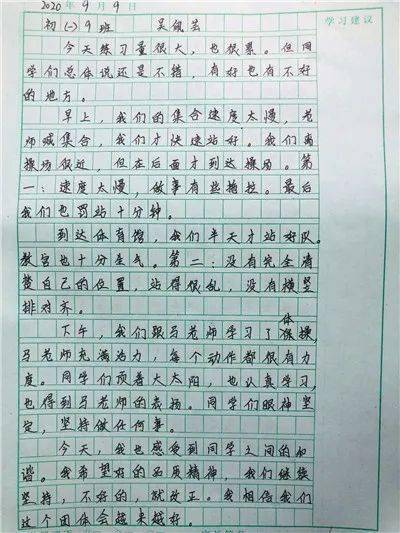 2020年9月9日
学习建议
初(一)9班 吴佩芸
今天练习量很大，也很累。但同
学们总体说还是不错，有好也有不好
的地方。
早上，我们的集合速度太慢，老
师喊集合，我们才快速站好。我们离
操场很近，但在后面才到达操场。第
一：速度太慢，做事有些拖拉。最后
我们也罚站十分钟。
到达体育馆，我们半天才站好队。
教官也十分生气。第二：没有完全清
楚自己的位置，站得很乱，没有横竖
排对齐。
下午，我们跟马老师学习了体操，
马老师充满活力，每个动作都很有力
度。同学们顶着大太阳，也认真学习，
也得到马老师的表扬。同学们眼神坚
定，坚持做任何事。
今天，我也感受到同学之间的和
谐。我希望好的品质精神，我们继续
坚持，不好的，就改正。我相信我们
这个团体会越来越好。